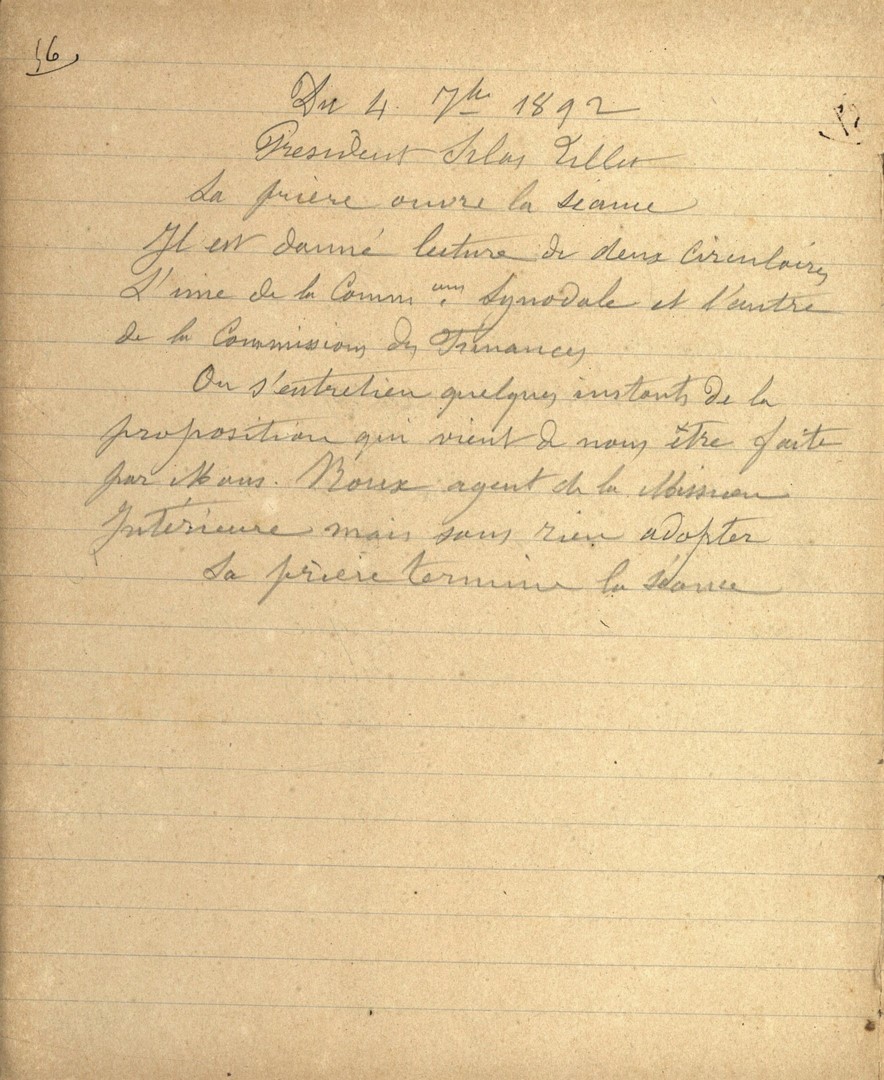 56
Du 4. 7bre 1892
President Silas
La prière ouvre la séance
Il est donné lecture de deux circulaires
L'une de la Comm on Synodale et l'autre
de la Commissions des Finances
On s'entretien quelques instants de la
proposition qui vient de nous être faite
par Mons. Roux agent de la Mission
Intérieure mais sans rien adopter
La prière termine la séance